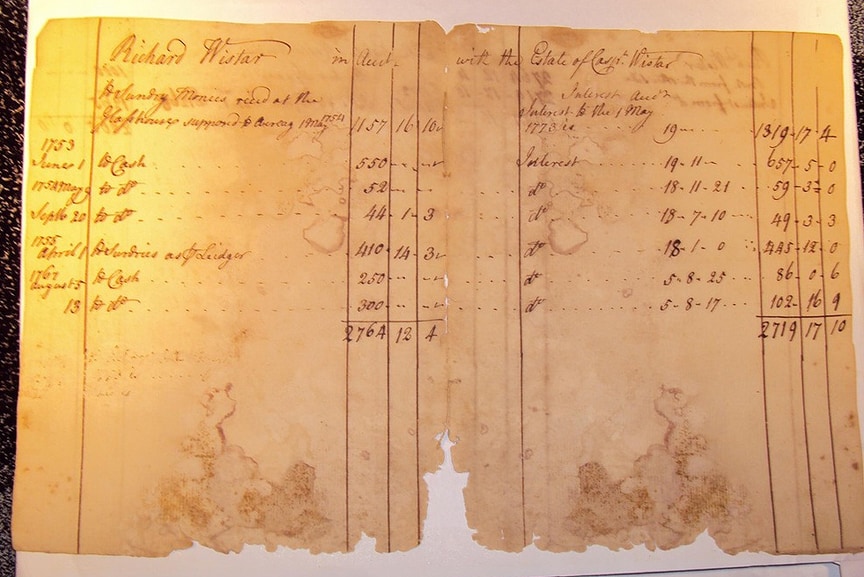 Richard Wistar in Acct. with the Estate of Caspr. Wistar
To Sundry Monies recd at the Interest Accot
Glasshouse supposed to Average 1 May 1754 1157 16 10 Interest to the 1 May 1773 is 19 1319 17 4
1753
June 1 to Cash 550 Interest 19-11 657-5-0
1754 May 9 to do 52 do 18-11-21 59-3-0
Septbr 20 to do 44-1-3 do 18-7-10 49-3-3
1755
April 1 To Sundries as P Ledger 410-14-3 do 18-1-0 445-12 0
1767
August 5 to Cash 250 do 5-8-25 86-0-6
13 to do 300 do 5-8-17 102-16 9
2764 12 4 2719 17 10